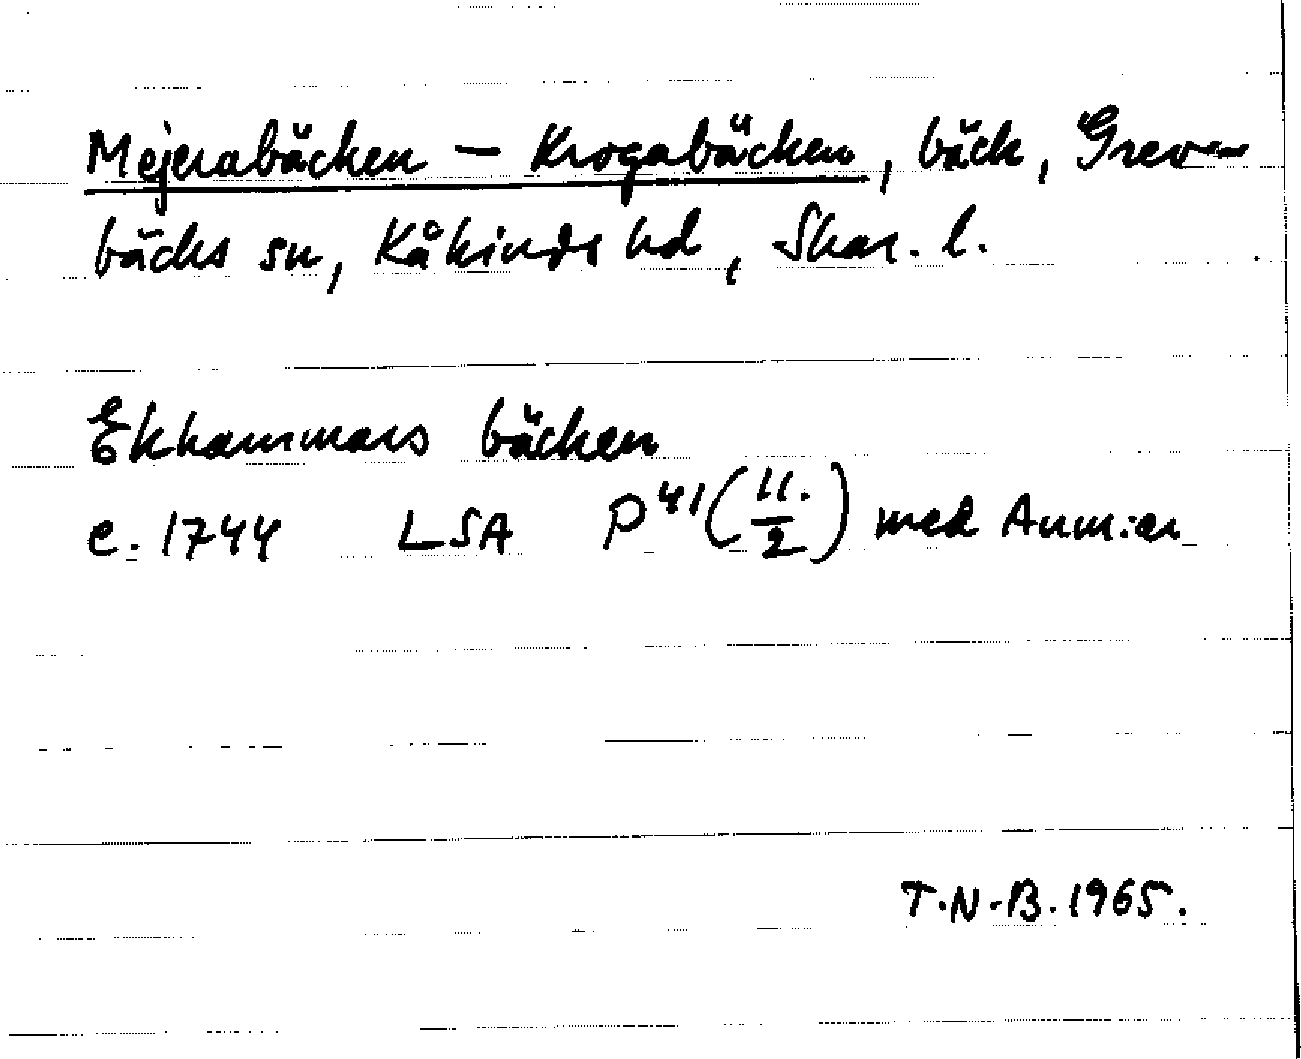 Mejerabäcken – Krogabäcken, bäck, Grev-
bäcks sn, Kåkinds hd, Skar. l.
Ekhammars bäcken
c. 1744 LSA P 41 (11:/2) med Anm:er
T.N-B. 1965.